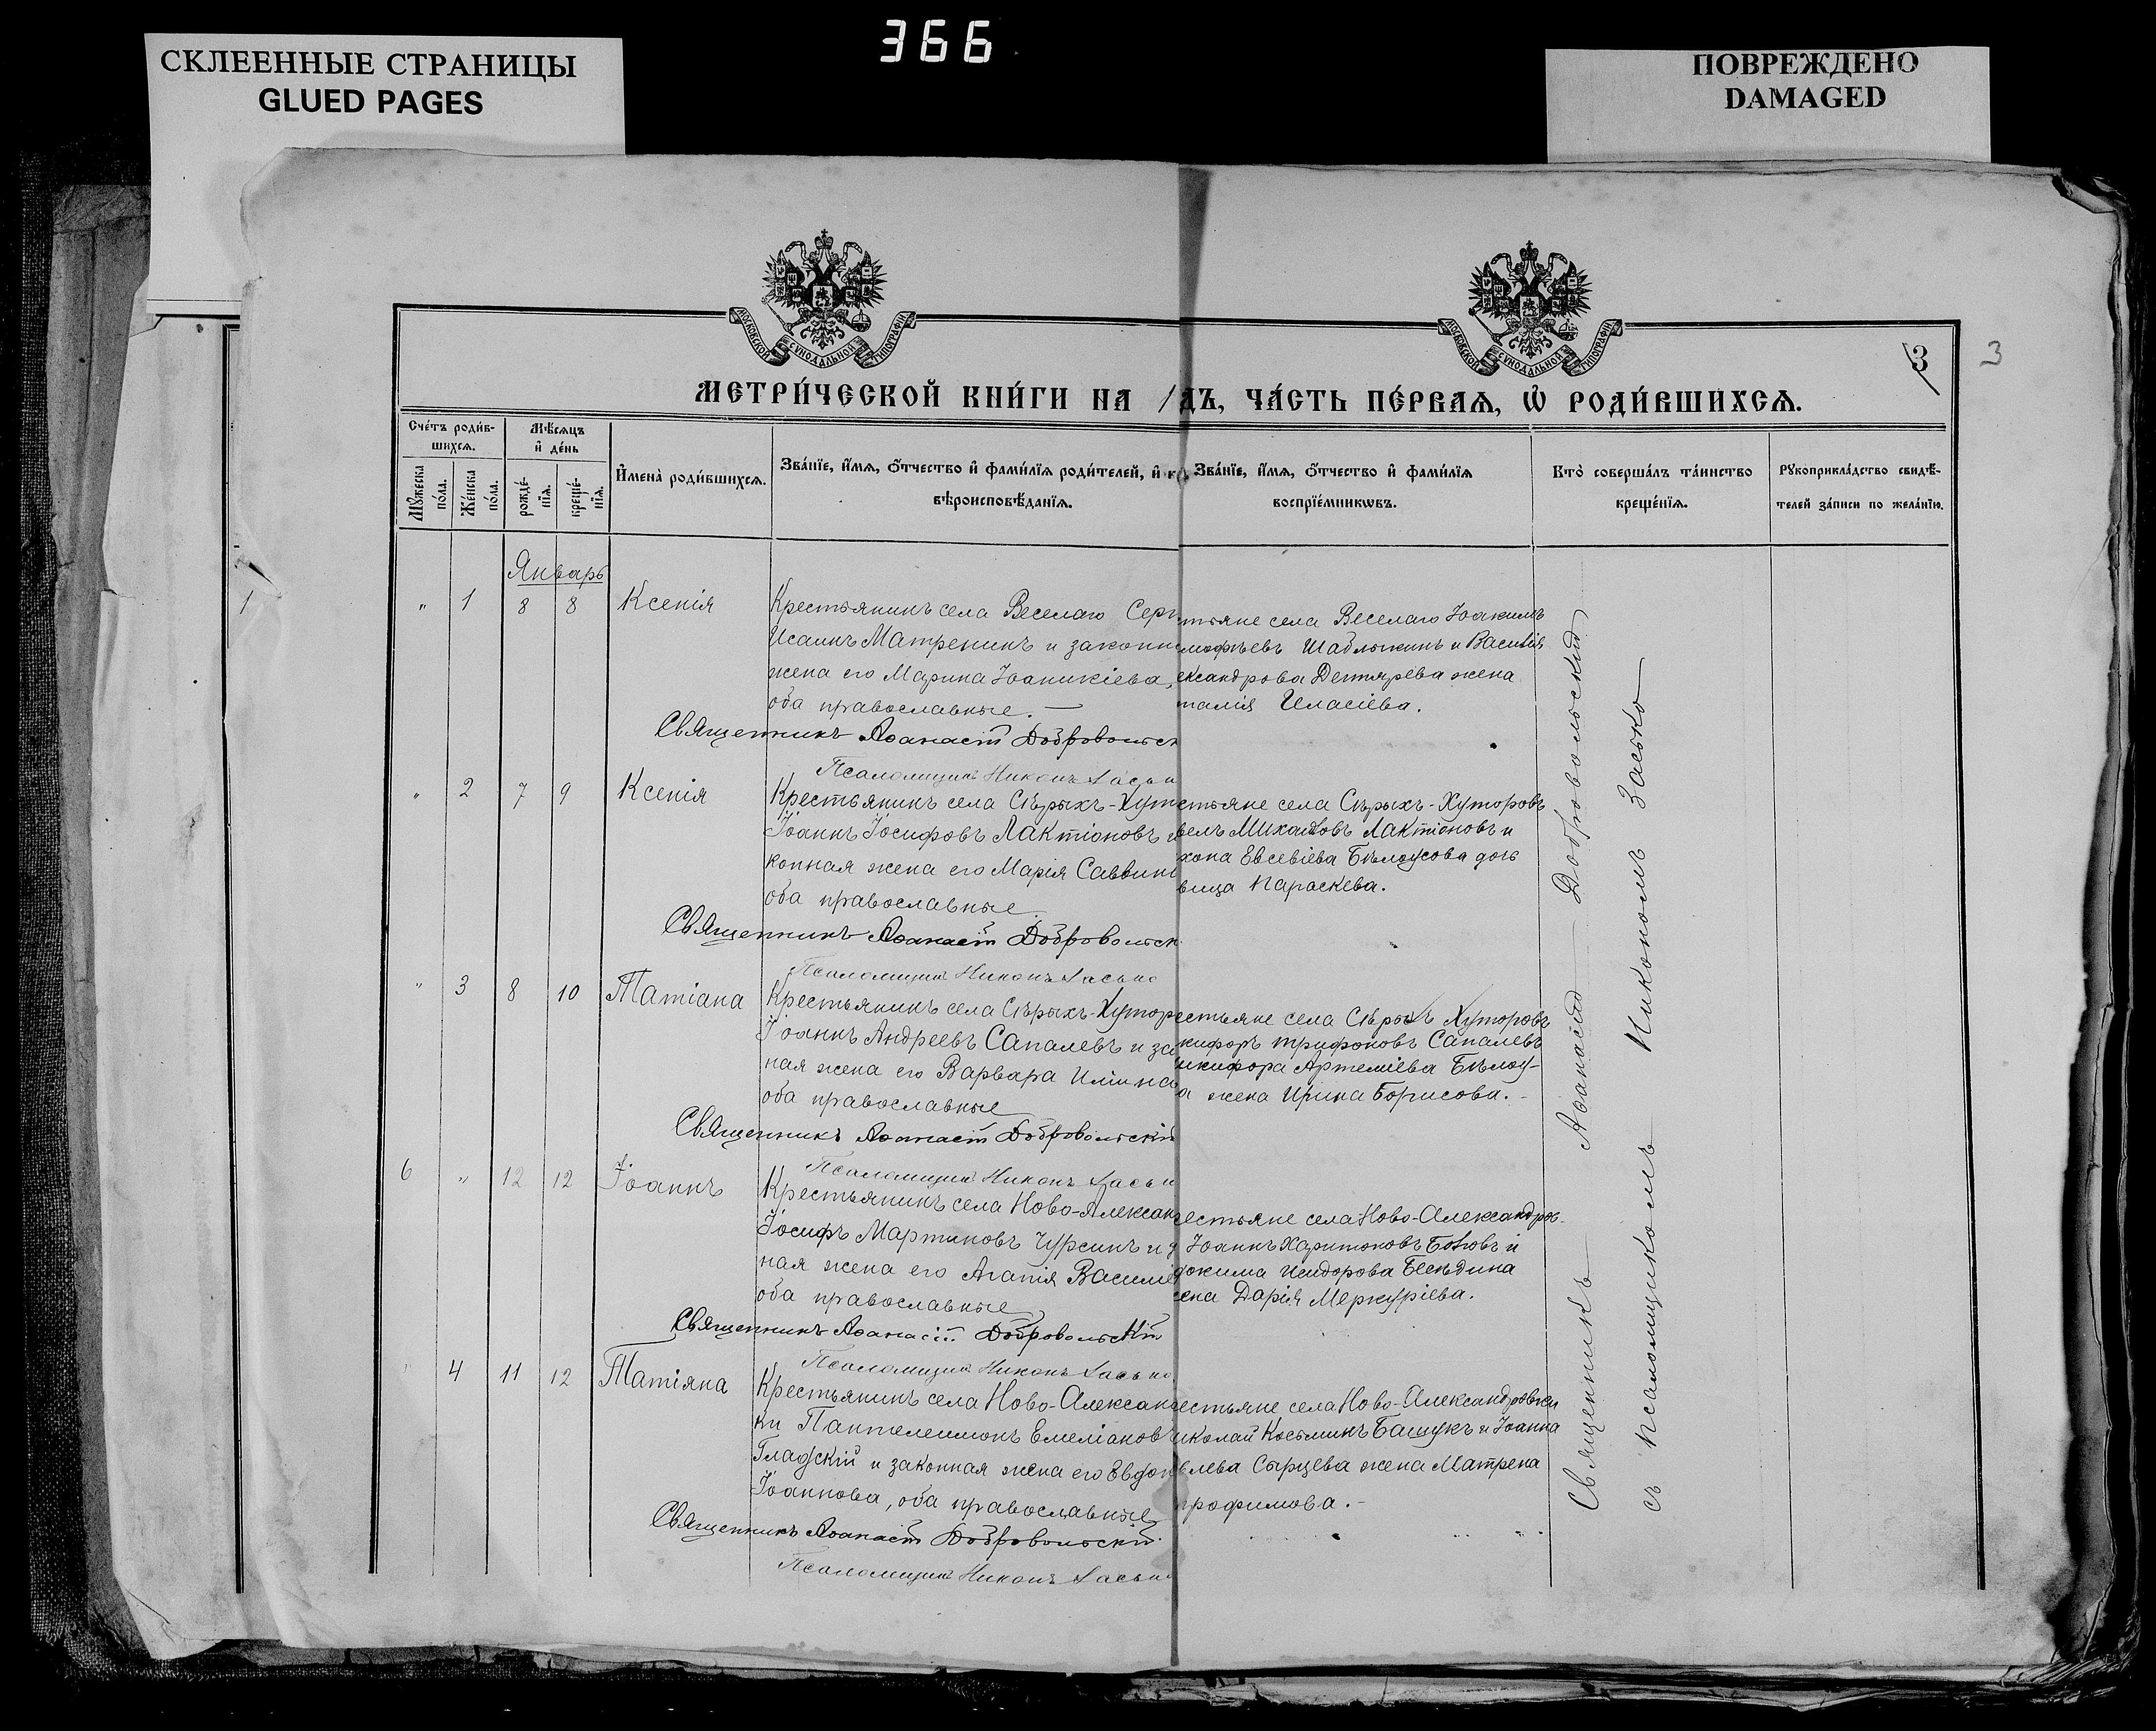 366
СКЛЕЕННЫЕ СТРАНИЦЫ
GLUED PAGES
ПОВРЕЖДЕНО
DAMAGED
МОСКОВСКОЙ СѴНОДАЛЬНОЙ ТИПОГРАФІИ
МОСКОВСКОЙ СѴНОДАЛЬНОЙ ТИПОГРАФІИ
3
3
МЕТРИ́ЧЕСКОЙ КНИ́ГИ НА
ДЪ, ЧА́СТЬ ПЕ́РВАѦ, Ѡ҆ РОДИ́ВШИХСѦ.
Сче́тъ роди́в-
шихсѧ.
Мꙋ́жеска
по́ла.
Же́нска
по́ла.
Мѣ́сѧцъ
и҆ де́нь
рожде́-
нїѧ.
креще́-
нїѧ.
И҆мена̀ роди́вшихсѧ.
Зва́нїе, и҆́мѧ, ѻ҆́тчество и҆ фами́лїѧ роди́телей, и҆
вѣроисповѣ́данїѧ.
Зва́нїе, и҆́мѧ, ѻ҆́тчество и҆ фами́лїѧ
воспрїе́мникѡвъ.
Кто̀ соверша́лъ та́инство
креще́нїѧ.
Рꙋкоприкла́дство свидѣ́-
телей за́писи по жела́нїю.
Январь
1
" 1 8 8 Ксенія
Крестьянинъ села Веселаго Серг
Исаинъ Матренинъ и законн
жена его Марина Іоаникіева,
оба православные. —
Священникъ Аѳанасій Добровольск
Псаломщикъ Никонъ Заськ
тьяне села Веселаго Іоакимъ
мофѣевъ Шаблыкинъ и Василія
ександрова Дегтярева жена
талія
" 2 7 9 Ксенія
Крестьянинъ села Сѣрыхъ-Хут
Іоаннъ Іосифовъ Лактіоновъ и
конная жена его Марія Саввин
оба православные
Священникъ Аѳанасій Добровольск
Псаломщикъ Никонъ Засько
стьяне села Сѣрыхъ-Хуторовъ
велъ Михайловъ Лактіоновъ и
хона Евсевіева Бѣлоусова дочь
вица Параскева.
" 3 8 10 Татіана
Крестьянинъ села Сѣрыхъ-Хутор
Іоаннъ Андреевъ Сапалевъ и за
ная жена его Варвара
оба православные
Священникъ Аѳанасій Добровольскій
Псаломщикъ Никонъ Заськ
естьяне села Сѣрыхъ Хуторовъ
кифоръ Трифоновъ Сапалевъ
икифора Артеміева Бѣлоу-
а жена Ирина Борисова. -
6 " 12 12 Іоаннъ
Крестьянинъ села Ново-Алексан
Іосифъ Мартиновъ Чурсинъ и
ная жена его Агапія Василіе
оба православные
Священникъ Аѳанасій Добровольскій
Псаломщикъ Никонъ Засько
естьяне села Ново-Александров-
Іоаннъ Харитоновъ и
докима Исидорова Бесѣдина
ена Дарія Меркуріева.
4 11 12 Татіяна
Крестьянинъ села Ново-Алексан
ки Пантелеимонъ Емеліанов
Гладскій и законная жена его Евдок
Іоаннова, оба православные
Священникъ Аѳанасій Добровольскій
Псаломщикъ Никонъ Заськ
естьяне села Ново-Александровки
иколай Косьминъ Башукъ и Іоанна
влева Сырцева жена Матрена
рофимова. -
Священникъ Аѳанасій Добровольскій
съ псаломщикомъ Никономъ Засько